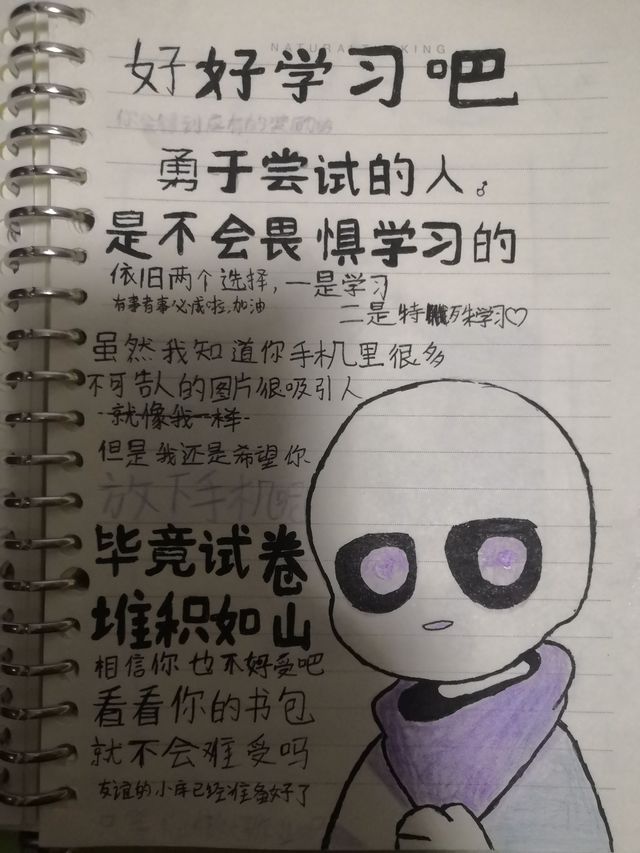 NATURAL KING
好好学习吧
勇于尝试的人。
是不会畏惧学习的
依旧两个选择，一是学习
有事者事必成啦，加油
二是特殊学习♡
虽然我知道你手机里很多
不可告人的图片很吸引人
就像我一样
但是我还是希望你
放下手机
毕竟试卷
堆积如山
相信你也不好受吧
看看你的书包
就不会难受吗
友谊的小床已经准备好了